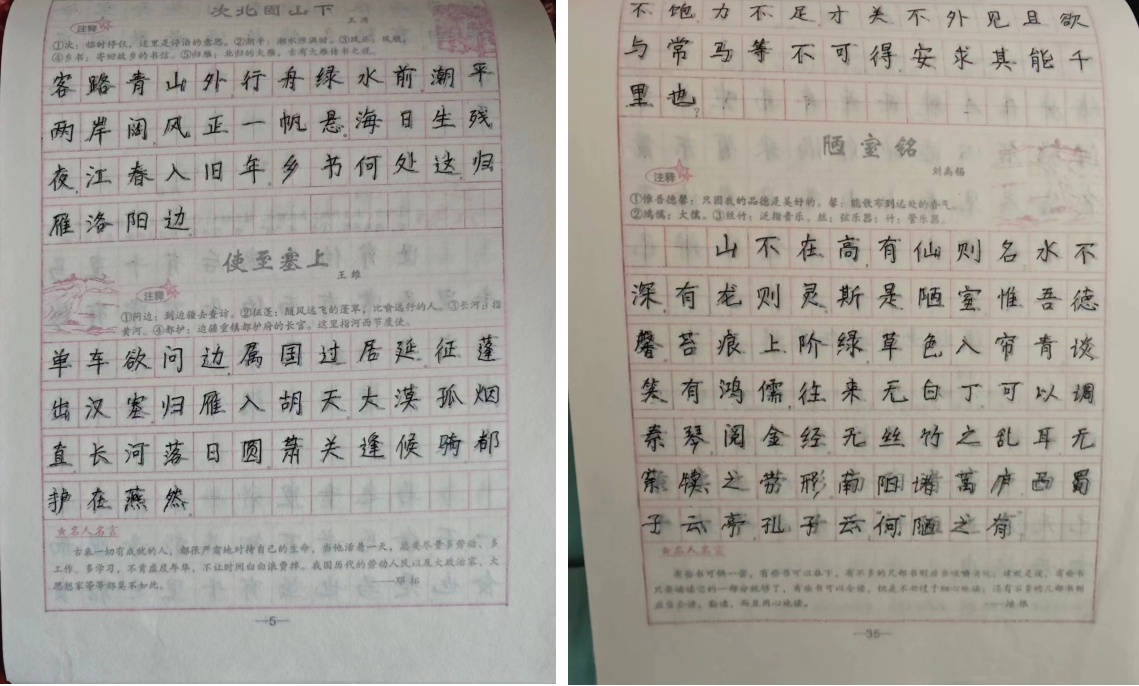 次北固山下
王湾
注释
①次：临时停住，这里是停泊的意思。②潮平：潮水涨满时。③风正：风顺。
④乡书：寄回故乡的书信。⑤归雁：北归的大雁，古有大雁传书之说。
客路青山外行舟绿水前潮平
两岸阔风正一帆悬海日生残
夜江春入旧年乡书何处达归
雁洛阳边
使至塞上
王维
注释
①问边：到边疆去查访。②征蓬：随风远飞的蓬草，比喻远行的人。③长河：指
黄河。④都护：边疆重镇都护府的长官。这里指河西节度使。
单车欲问边属国过居延征蓬
出汉塞归雁入胡天大漠孤烟
直长河落日圆萧关逢候骑都
护在燕然
★名人名言
古来一切有成就的人，都很严肃地对待自己的生命，当他活着一天，总要尽量多劳动、多
工作、多学习，不肯虚度年华，不让时间白白浪费掉。我国历代的劳动人民以及大政治家、大
思想家等等都莫不如此。——邓拓
—5—
不饱力不足才美不外见且欲
与常马等不可得安求其能千
里也
陋室铭
刘禹锡
注释
①惟吾德馨：只因我的品德是美好的。馨：能散布到远处的香气。
②鸿儒：大儒。③丝竹：泛指音乐。丝：弦乐器；竹：管乐器。
山不在高有仙则名水不
深有龙则灵斯是陋室惟吾德
馨苔痕上阶绿草色入帘青谈
笑有鸿儒往来无白丁可以调
素琴阅金经无丝竹之乱耳无
案牍之劳形南阳诸葛庐西蜀
子云亭孔子云何陋之有
★名人名言
——培根
—35—